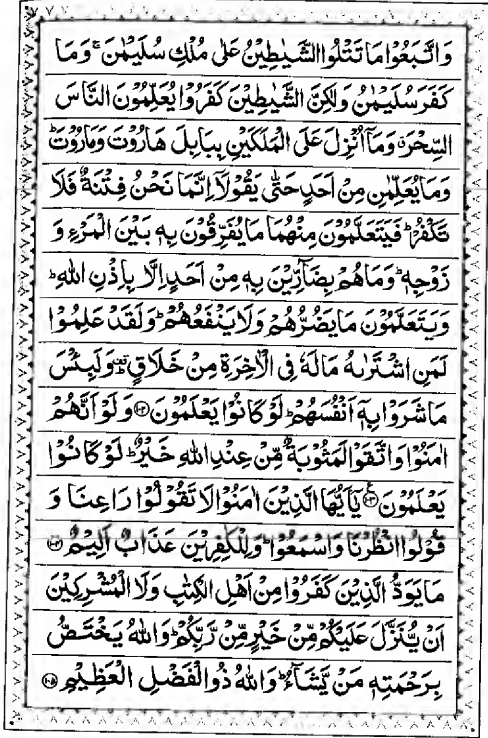 وَاتَّبَعُوْا مَا تَتْلُوا الشَّيٰطِيْنُ عَلٰى مُلْكِ سُلَيْمٰنَ ۚ وَمَا
كَفَرَ سُلَيْمٰنُ وَلٰكِنَّ الشَّيٰطِيْنَ كَفَرُوْا يُعَلِّمُوْنَ النَّاسَ
السِّحْرَ ۗ وَمَآ اُنْزِلَ عَلَى الْمَلَكَيْنِ بِبَابِلَ هَارُوْتَ وَمَارُوْتَ ؕ
وَمَا يُعَلِّمٰنِ مِنْ اَحَدٍ حَتّٰى يَقُوْلَاۤ اِنَّمَا نَحْنُ فِتْنَةٌ فَلَا
تَكْفُرْ ؕ فَيَتَعَلَّمُوْنَ مِنْهُمَا مَا يُفَرِّقُوْنَ بِهٖ بَيْنَ الْمَرْءِ وَ
زَوْجِهٖ ؕ وَمَا هُمْ بِضَآرِّيْنَ بِهٖ مِنْ اَحَدٍ اِلَّا بِاِذْنِ اللّٰهِ ؕ
وَيَتَعَلَّمُوْنَ مَا يَضُرُّهُمْ وَلَا يَنْفَعُهُمْ ؕ وَلَقَدْ عَلِمُوْا
لَمَنِ اشْتَرٰىهُ مَا لَهٗ فِى الْاٰخِرَةِ مِنْ خَلَاقٍ ؕ وَلَبِئْسَ
مَا شَرَوْا بِهٖۤ اَنْفُسَهُمْ ؕ لَوْ كَانُوْا يَعْلَمُوْنَ ﴿۱۰۲﴾ وَلَوْ اَنَّهُمْ
اٰمَنُوْا وَاتَّقَوْا لَمَثُوْبَةٌ مِّنْ عِنْدِ اللّٰهِ خَيْرٌ ؕ لَوْ كَانُوْا
يَعْلَمُوْنَ ﴿۱۰۳﴾ يٰۤاَيُّهَا الَّذِيْنَ اٰمَنُوْا لَا تَقُوْلُوْا رَاعِنَا وَ
قُوْلُوا انْظُرْنَا وَاسْمَعُوْا ؕ وَلِلْكٰفِرِيْنَ عَذَابٌ اَلِيْمٌ ﴿۱۰۴﴾
مَا يَوَدُّ الَّذِيْنَ كَفَرُوْا مِنْ اَهْلِ الْكِتٰبِ وَلَا الْمُشْرِكِيْنَ
اَنْ يُّنَزَّلَ عَلَيْكُمْ مِّنْ خَيْرٍ مِّنْ رَّبِّكُمْ ؕ وَاللّٰهُ يَخْتَصُّ
بِرَحْمَتِهٖ مَنْ يَّشَآءُ ؕ وَاللّٰهُ ذُو الْفَضْلِ الْعَظِيْمِ ﴿۱۰۵﴾